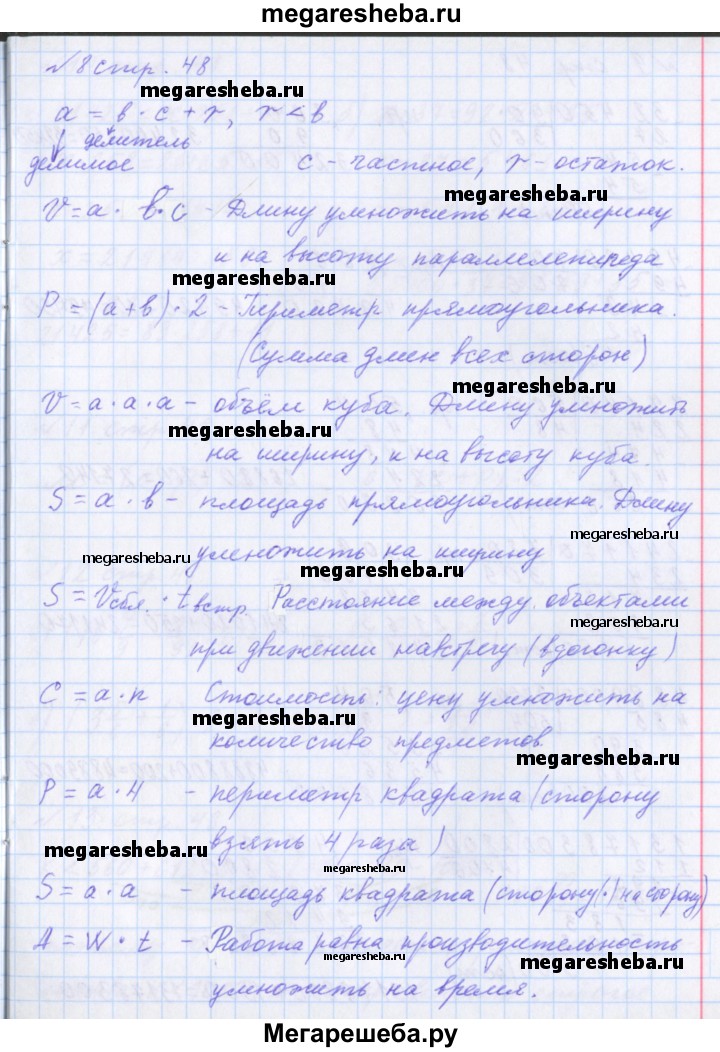 megaresheba.ru
№8 стр. 48
megaresheba.ru
a = b · c + r, r < b
делитель
делимое c - частное, r - остаток.
megaresheba.ru
V = a · b · c - Длину умножить на ширину
и на высоту параллелепипеда
megaresheba.ru
P = (a + b) · 2 - Периметр прямоугольника.
(Сумма длин всех сторон)
megaresheba.ru
V = a · a · a - объём куба. Длину умножить
megaresheba.ru
на ширину, и на высоту куба.
S = a · b - площадь прямоугольника. Длину
megaresheba.ru
умножить на ширину
megaresheba.ru
megaresheba.ru
S = Vсбл. · tвстр. Расстояние между объектами
megaresheba.ru
при движении навстречу (вдогонку)
C = a · n Стоимость: цену умножить на
megaresheba.ru
количество предметов.
megaresheba.ru
P = a · 4 - периметр квадрата (сторону
взять 4 раза)
megaresheba.ru
megaresheba.ru
S = a · a - площадь квадрата (сторону (·) на сторону)
A = W · t - Работа равна производительность
megaresheba.ru
megaresheba.ru
умножить на время.
Мегарешеба.ру